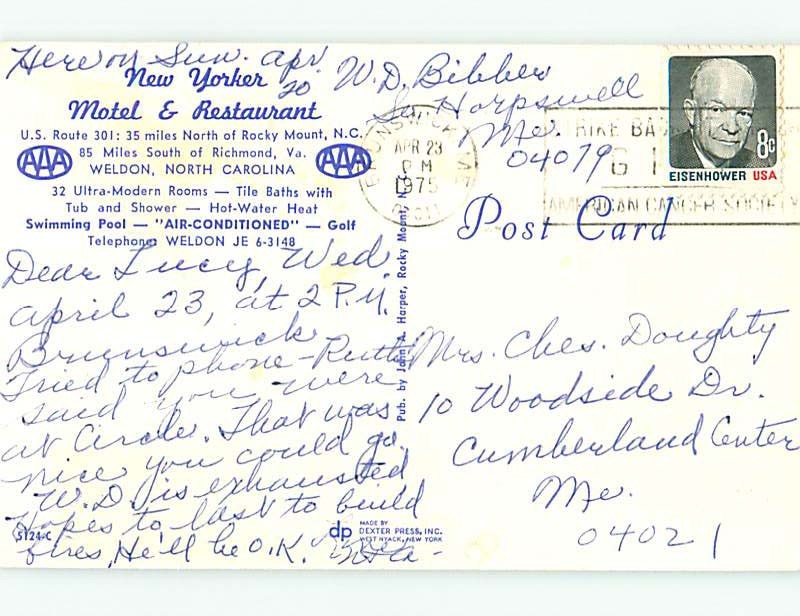 Here on Sun. Apr.
20
New Yorker
Motel & Restaurant
U.S. Route 301: 35 miles North of Rocky Mount, N.C.
AAA
85 Miles South of Richmond, Va.
AAA
WELDON, NORTH CAROLINA
32 Ultra-Modern Rooms — Tile Baths with
Tub and Shower — Hot-Water Heat
Swimming Pool — "AIR-CONDITIONED" — Golf
Telephone: WELDON JE 6-3148
Dear Lucy, Wed.
April 23, at 2 P.M.
Brunswick
Tried to phone - Ruth
said you were
at Circle. That was
nice you could go.
W.D. is exhausted
Hopes to last to build
fires, He'll be O.K.
S124-C
Pub. by John A. Harper, Rocky Mount, N.C.
dp
MADE BY
DEXTER PRESS, INC.
WEST NYACK, NEW YORK
W.D. Bibber
So. Harpswell
Me.
04079
BRUNSWICK
APR 23
PM
1975
8c
EISENHOWER USA
AMERICAN CANCER SOCIETY
Post Card
Mrs. Ches. Doughty
10 Woodside Dr.
Cumberland Center
Me.
04021